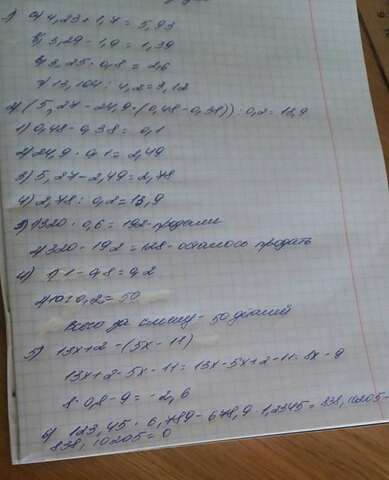 1) а) 4,23+1,7=5,93
б) 3,29-1,9=1,39
в) 3,25·0,8=2,6
г) 13,104:4,2=3,12
2) (5,27-24,9·(0,48-0,38)):0,2=13,9
1) 0,48-0,38=0,1
2) 24,9·0,1=2,49
3) 5,27-2,49=2,78
4) 2,78:0,2=13,9
3) 1) 320·0,6=192-продали
2) 320-192=128-осталось продать
4) 1) 1-0,8=0,2
2) 10:0,2=50
Всего за смену-50 деталей
5) 13х+2-(5х-11)
13х+2-5х-11=13х-5х+2-11=8х-9
8·0,8-9=-2,6
6) 123,45·6,789-678,9·1,2345=838,10205-
838,10205=0